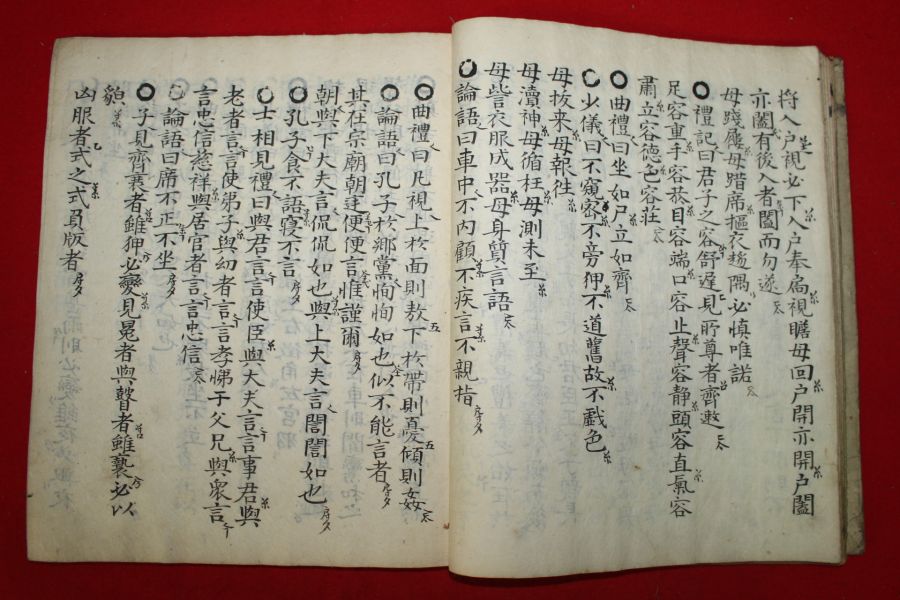 將入戶視必下入戶奉扃視瞻毋回戶開亦開戶闔
亦闔有後入者闔而勿遂
毋踐屨毋踖席摳衣趨隅必慎唯諾
○禮記曰君子之容舒遲見所尊者齊遬
足容重手容恭目容端口容止聲容靜頭容直氣容
肅立容德色容莊
○曲禮曰坐如尸立如齊
○少儀曰不窺密不旁狎不道舊故不戱色
毋拔來毋報往
毋瀆神毋循枉毋測未至
毋訾衣服成器毋身質言語
○論語曰車中不內顧不疾言不親指
○曲禮曰凡視上於面則敖下於帶則憂傾則姦
○論語曰孔子於鄕黨恂恂如也似不能言者
其在宗廟朝廷便便言惟謹爾
朝與下大夫言侃侃如也與上大夫言誾誾如也
○孔子食不語寢不言
○士相見禮曰與君言言使臣與大夫言言事君與
老者言言使弟子與幼者言言孝悌于父兄與衆言
言忠信慈祥與居官者言言忠信
○論語曰席不正不坐
○子見齊衰者雖狎必變見冕者與瞽者雖褻必以
貌
凶服者式之式負版者